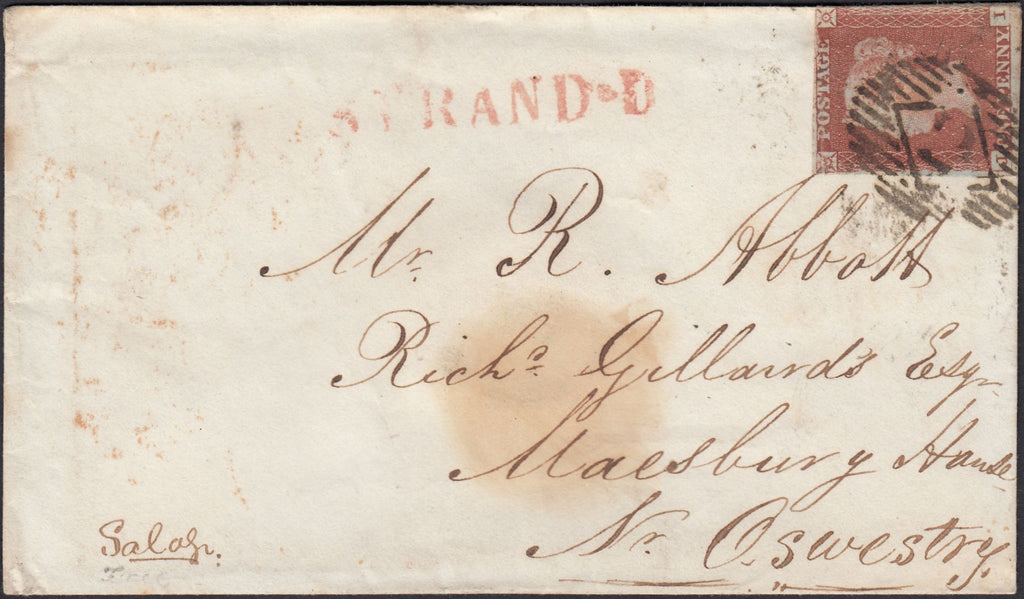 STRAND-D
POSTAGE
PENNY
I
Mr. R. Abbott
Richd. Gillards Esqr
Maesbury House
Nr. Oswestry.
Salop.